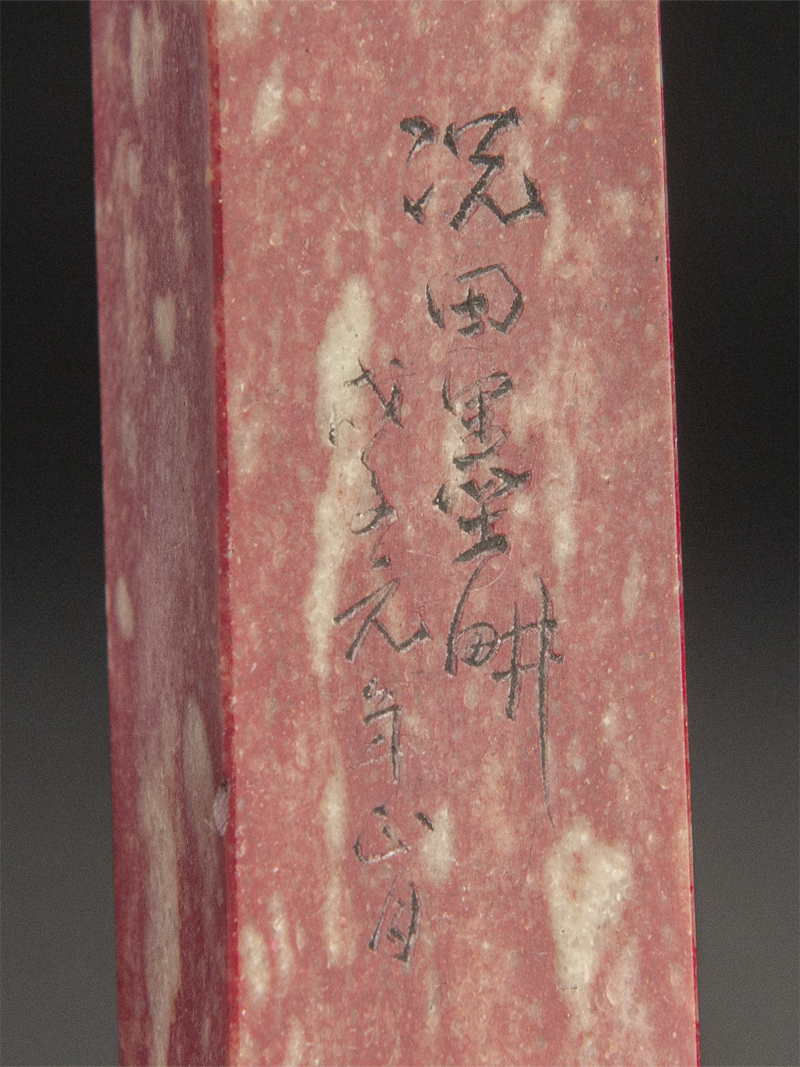 况田墨畊
戊子元年正月